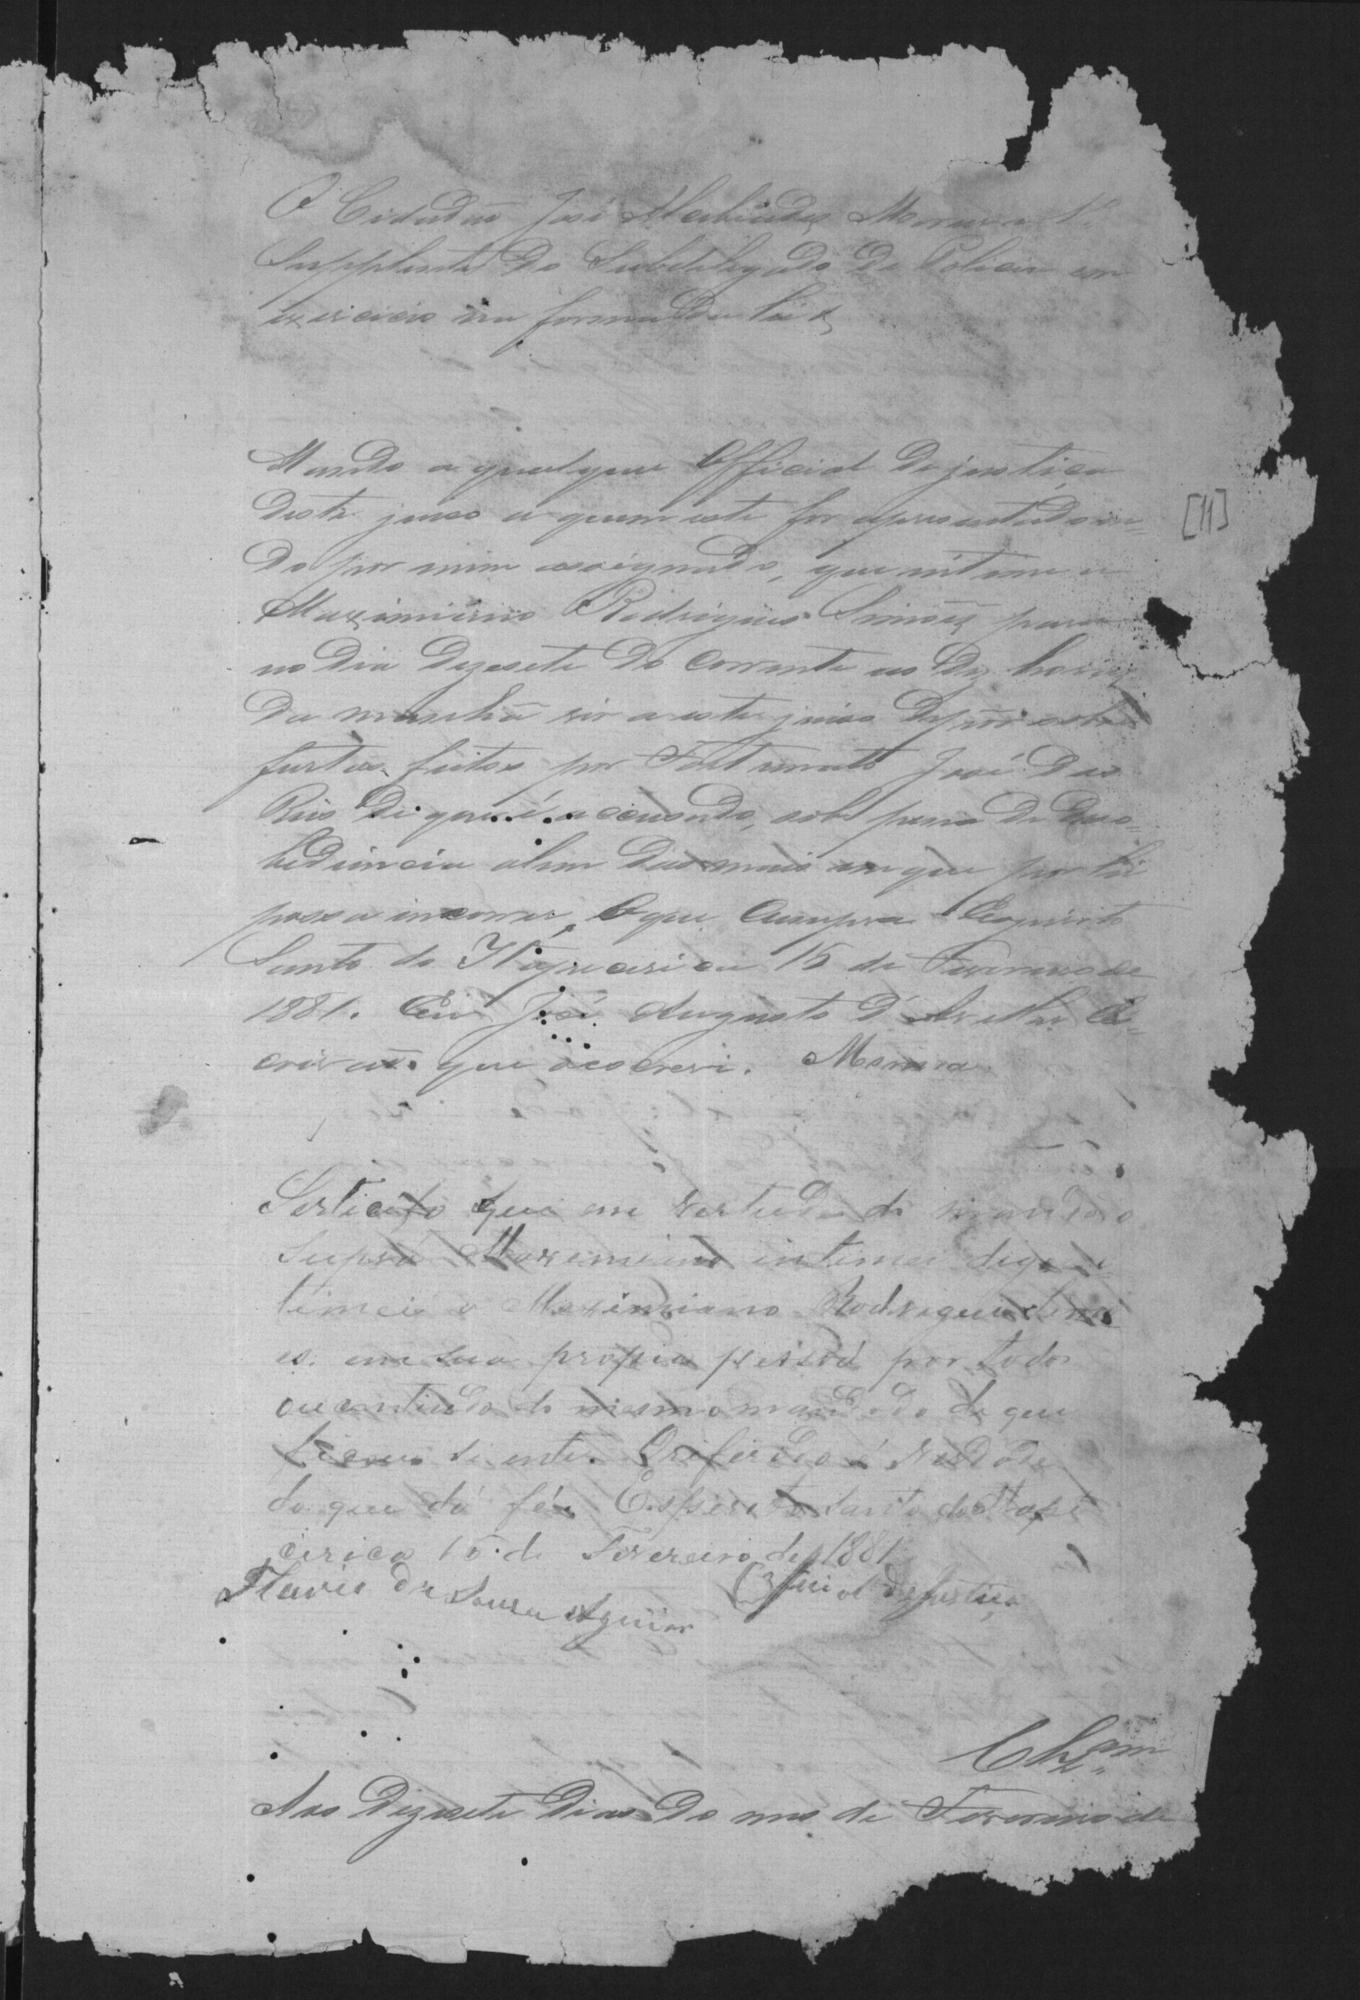 O Cidadão José Alcebiades Moreira 1º
Supplente do Subdelegado de Policia em
exercicio na forma da lei &
Mando a qualquer Official de justiça
deste juizo a quem este for apresentado in=
do por mim assignado, que intime a
Maximiano Rodrigues Simões para
no dia dezesete do corrente as dez horas
da manhã vir a este juizo depôr sobre
furtos feitos por Fortunato José dos
Reis de que é accusado, sob pena de deso=
bediencia alem das mais em que por lei
possa incorrer, O que Cumpra Espirito
Santo do Itapecerica 15 de Fevereiro de
1881. Eu José Augusto d'Avellar Es=
crivão que o escrevi. Moreira
[11]
Sertifico que em vertude do mandado
supra Maxemiano intimei digo in
timei a Maximiano Rodrigues Simo
es. em sua propia pessoa por todo
o contiudo do mesmo mandado de que
ficou siente. O referido é verdade
do que dá fé. Esperito Santo do Itape
cirica 15 de Fevereiro de 1881
Flavio de Souza Aguiar Oficial de Justiça
Aos dezesete dias do mes de Fevereiro de